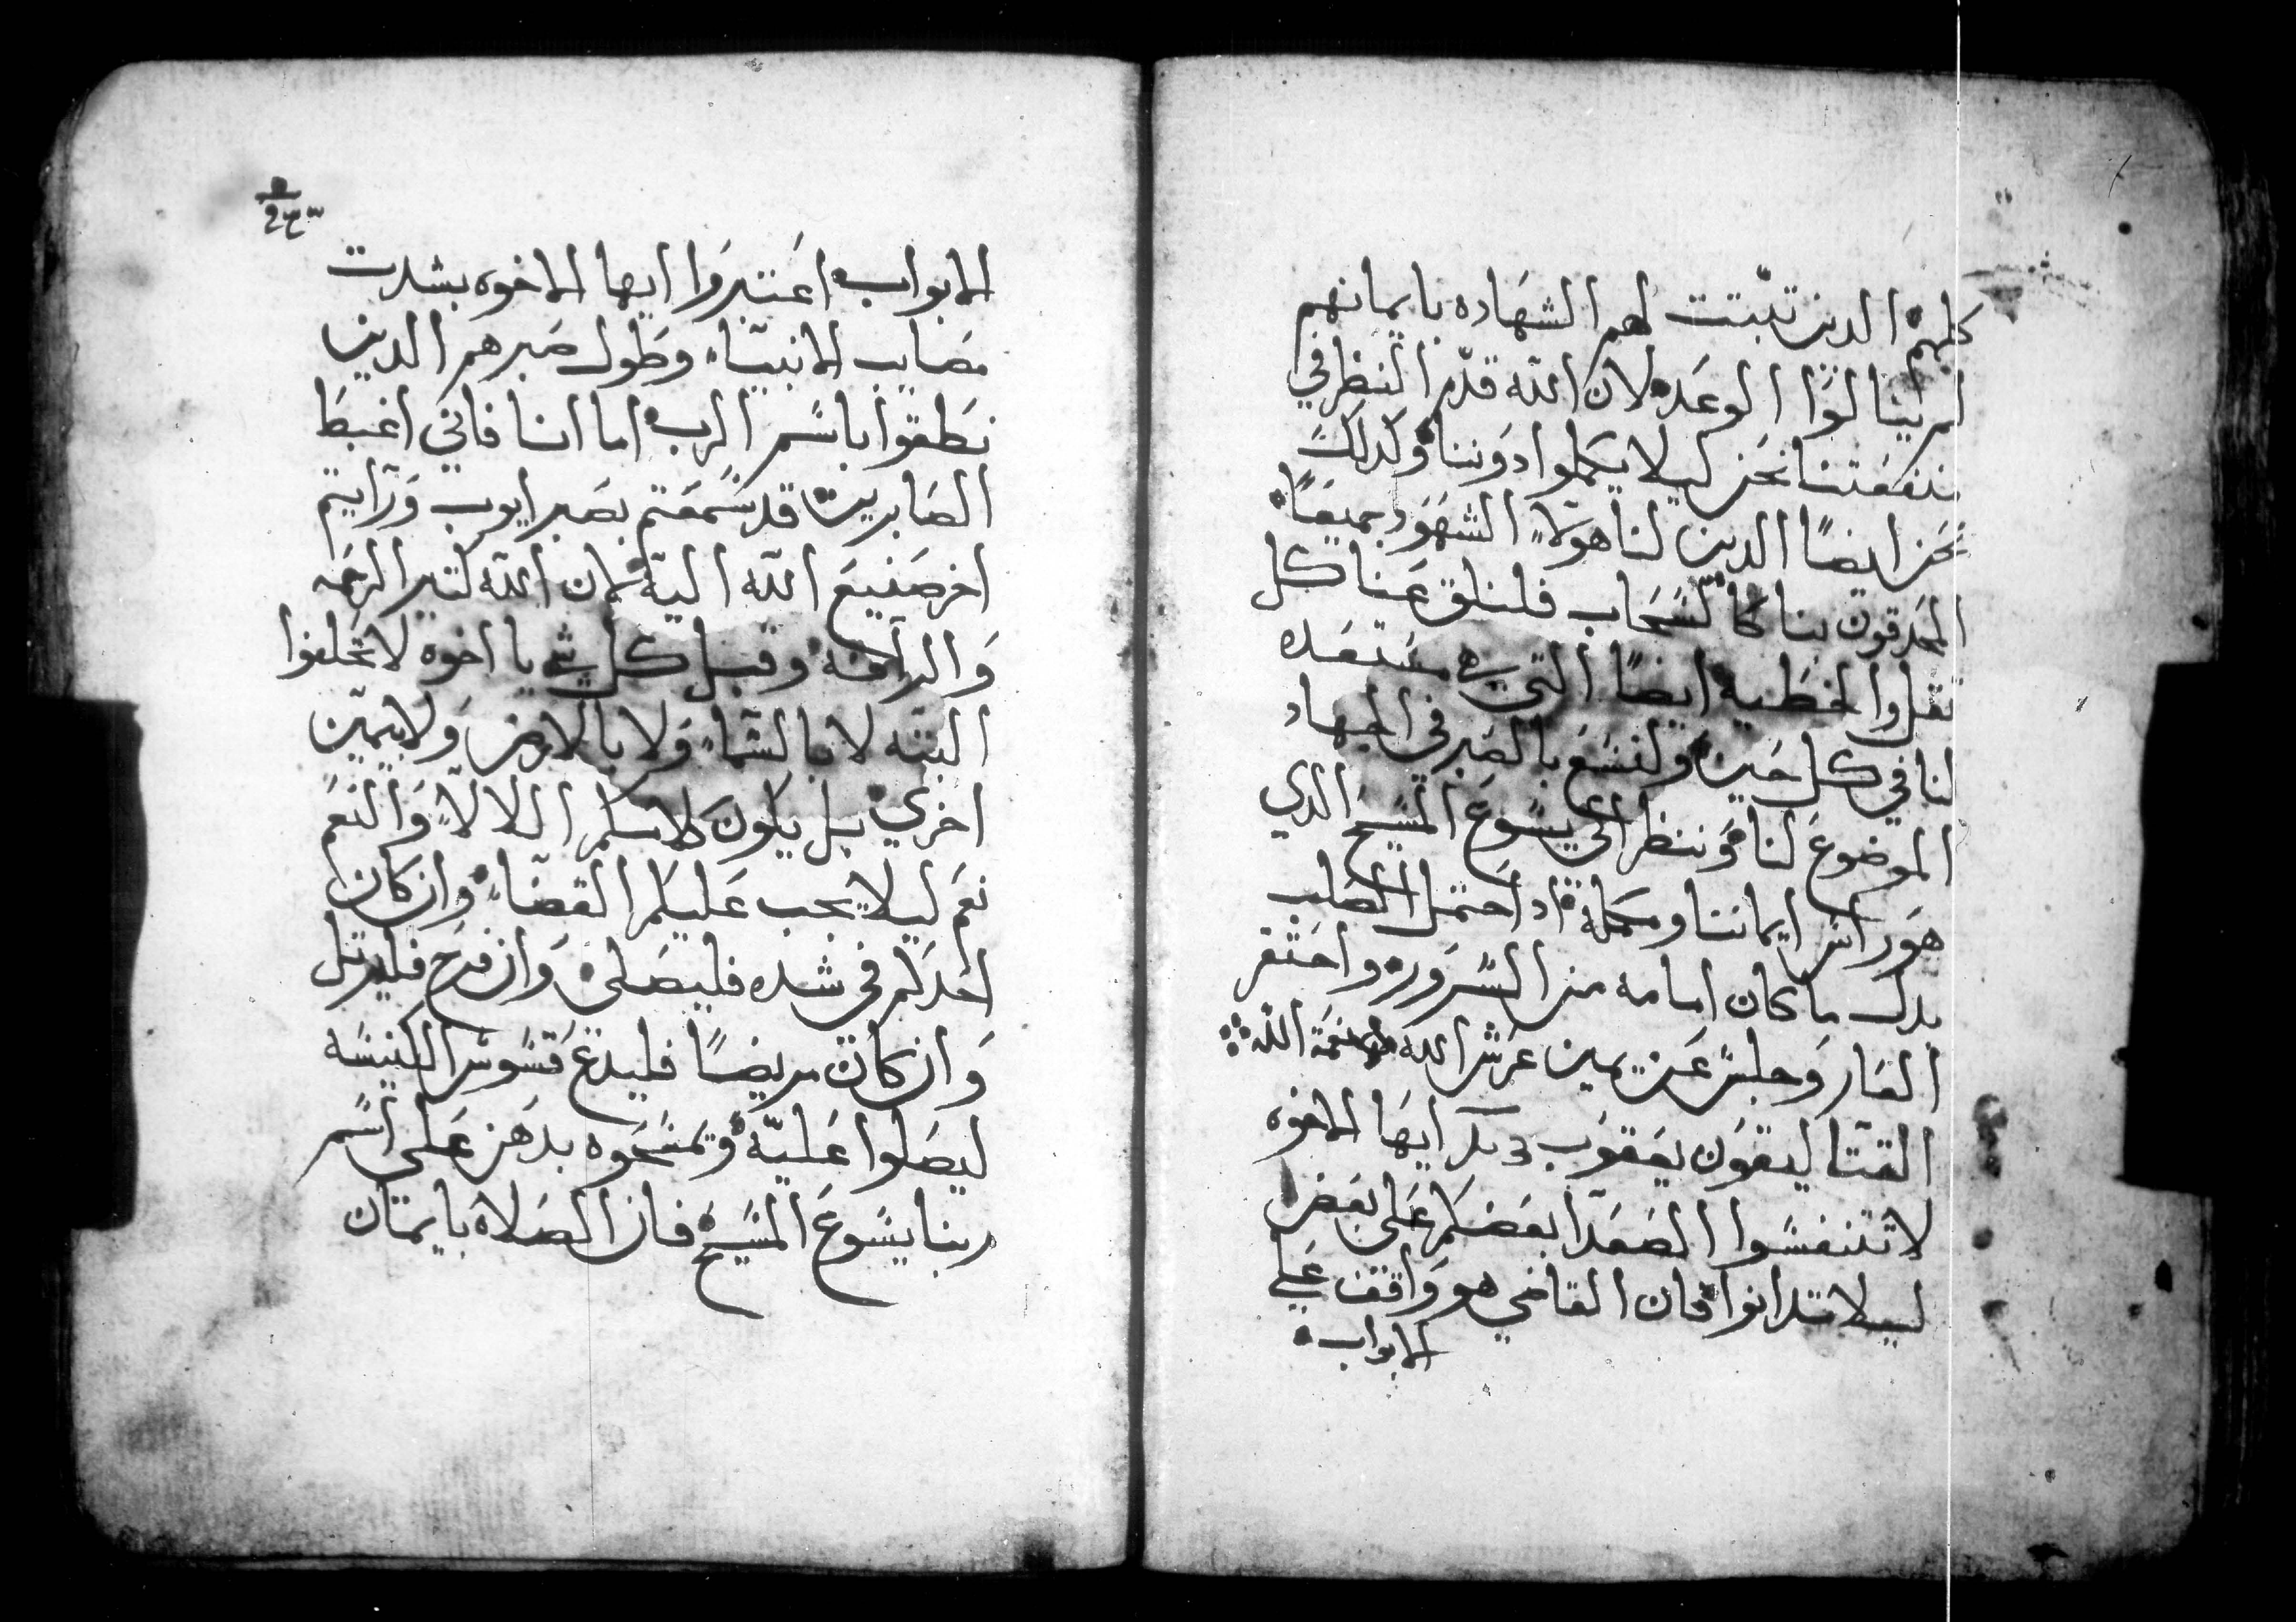 كلهم الدين تبّتت لهم الشهاده بايمانهم
لم ينالوا الوعد لان الله قدّم النظر في
منفعتنا نحن ليلا يكملوا دوننا وكدلك
نحن ايضًا الدين لنا هولآء الشهود جميعًا
المحدقون بنا كالسحاب فلنلق عنا كل
ثقل والخطيه ايضًا التي هي مستعده
لنا في كل حين ولنسع بالصبر في الجهاد
الموضوع لنا وننظر الي يسوع المسيح الدي
هو راس ايماننا ومكمله اد احتمل الصلب
بدل ما كان امامه من السرور واحتقر
العار وجلس عن يمين عرش الله نعمة الله
القتاليقون يعقوب د بكر ايها الاخوه
لا تتنفسوا الصعدآ بعضكم علي بعض
ليلا تدانوا فان القاضي هو واقف علي
الابواب
الابواب اعتبروا ايها الاخوه بشدت
مصايب الانبيآء وطول صبرهم الدين
نطقوا باسم الرب اما انا فاني اغبط
الصابرين قد سمعتم بصبر ايوب ورآيتم
اخر صنيع الله اليه لان الله كتير الرحمه
والرآفه وقبل كل شي يا اخوه لا تحلفوا
البته لا بالسمآء ولا بالارض ولا بيمين
اخري بل يكون كلامكم اللا لا والنعم
نعم ليلا يجب عليكم القضآء وان كان
احدكم في شده فليصلي وان فرح فليرتل
وان كان مريضًا فليدع قسوس الكنيسه
ليصلوا عليه وتمسحوه بدهن علي اسم
ربنا يسوع المسيح فان الصلاه بايمان